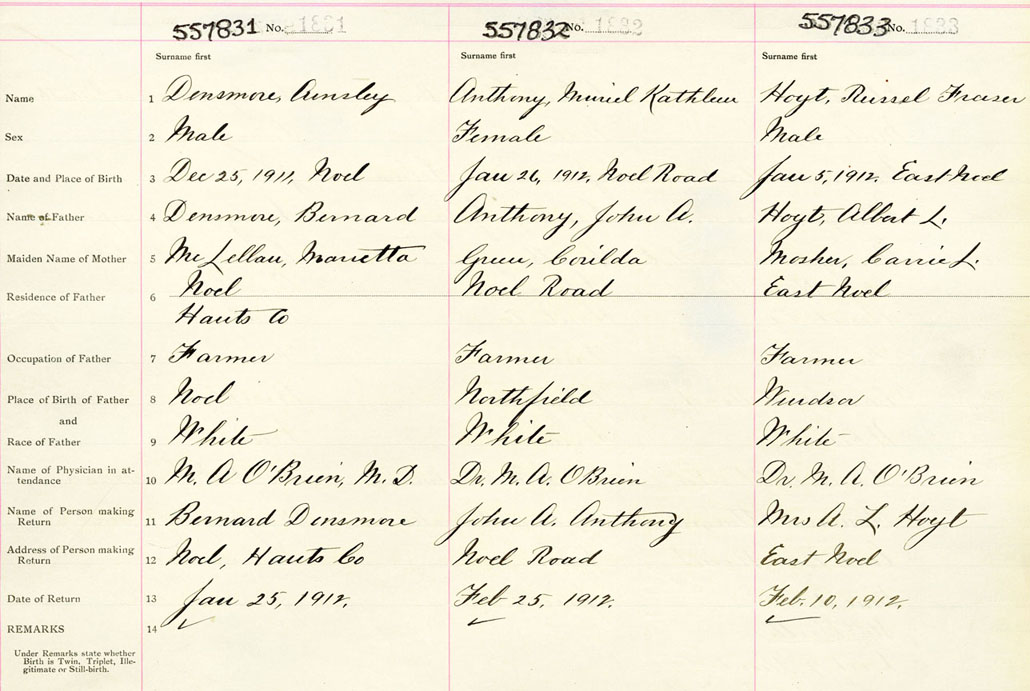 557831 No. 1831 557832 No. 1832 557833 No. 1833
Surname first Surname first Surname first
Name 1 Densmore, Ainsley Anthony, Muriel Kathleen Hoyt, Russel Fraser
Sex 2 Male Female Male
Date and Place of Birth 3 Dec 25, 1911, Noel Jan 26, 1912, Noel Road Jan 5, 1912. East Noel
Name of Father 4 Densmore, Bernard Anthony, John A. Hoyt, Albert L.
Maiden Name of Mother 5 McLellan, Marietta Green, Corilda Mosher, Carrie L.
Residence of Father 6 Noel Noel Road East Noel
Hants Co
Occupation of Father 7 Farmer Farmer Farmer
Place of Birth of Father 8 Noel Northfield Windsor
and
Race of Father 9 White White White
Name of Physician in at-
tendance 10 M. A O'Brien, M. D. Dr. M. A. OBrien Dr. M. A. O'Brien
Name of Person making
Return 11 Bernard Densmore John A. Anthony Mrs A. L. Hoyt
Address of Person making
Return 12 Noel, Hants Co Noel Road East Noel
Date of Return 13 Jan 25, 1912. Feb 25, 1912. Feb. 10, 1912.
REMARKS 14
Under Remarks state whether
Birth is Twin, Triplet, Ille-
gitimate or Still-birth.